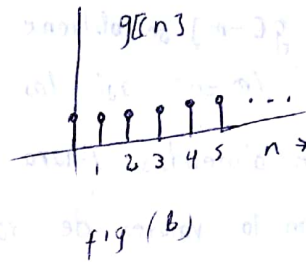 g[n]
1 2 3 4 5 ... n →
fig (b)